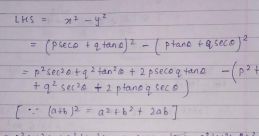 LHS = x² - y²
= (psecθ + qtanθ)² - (ptanθ + qsecθ)²
= p²sec²θ + q²tan²θ + 2psecθqtanθ - (p²t
+ q²sec²θ + 2ptanθqsecθ)
[ ∵ (a+b)² = a² + b² + 2ab ]